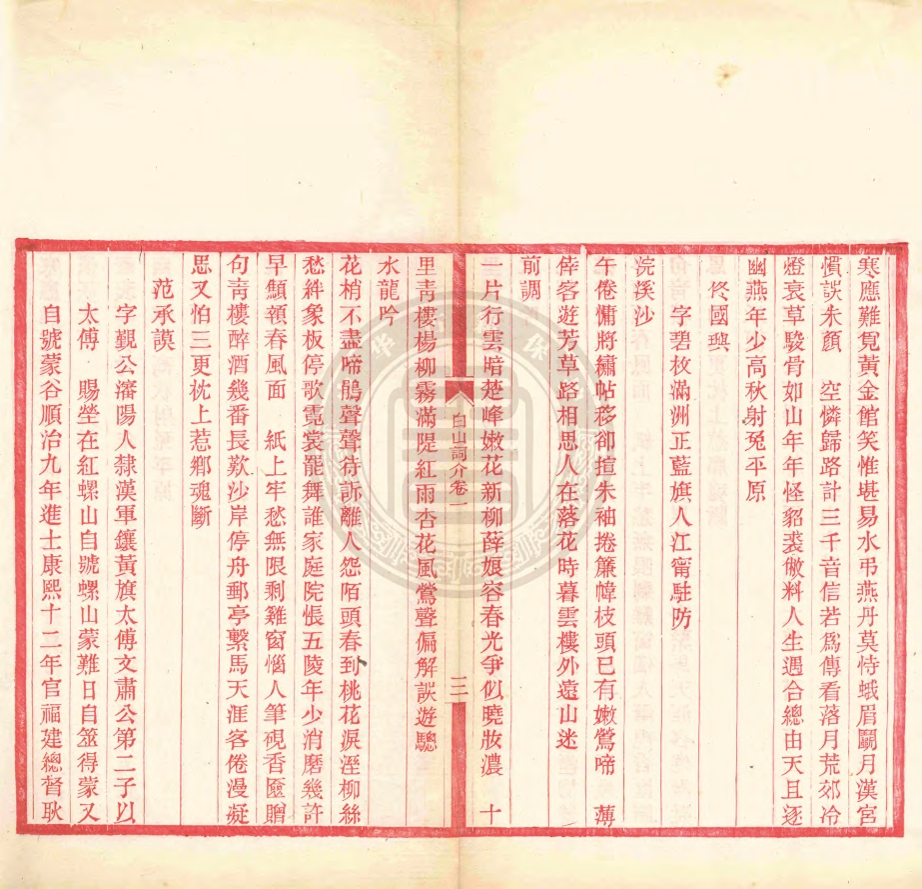 寒應難覓黃金館笑惟堪易水弔燕丹莫恃蛾眉鬬月漢宮
慣誤朱顏　空憐歸路計三千音信若爲傳看落月荒郊冷
燈衰草駿骨如山年年怪貂裘敝料人生遇合總由天且逐
幽燕年少高秋射兔平原
佟國璵
字碧枚滿洲正藍旗人江甯駐防
浣溪沙
午倦慵將繡帖移卻揎朱袖捲簾幃枝頭已有嫩鶯啼　薄
倖客遊芳草路相思人在落花時暮雲樓外遠山迷
前調
一片行雲暗楚峰嫩花新柳薛娘容春光爭似曉妝濃　十
白山詞介卷一
三
里青樓楊柳霧滿隄紅雨杏花風鶯聲偏解誤遊驄
水龍吟
花梢不盡啼鵑聲聲待訴離人怨陌頭春到桃花淚溼柳絲
愁絆象板停歌霓裳罷舞誰家庭院悵五陵年少消磨幾許
早顦顇春風面　紙上牢愁無限剩雞窗惱人筆硯香匳贈
句靑樓醉酒幾番長歎沙岸停舟郵亭繫馬天涯客倦漫凝
思又怕三更枕上惹鄉魂斷
范承謨
字覲公瀋陽人隸漢軍鑲黃旗太傅文肅公第二子以
太傅　賜塋在紅螺山自號螺山蒙難日自筮得蒙又
自號蒙谷順治九年進士康熙十二年官福建總督耿